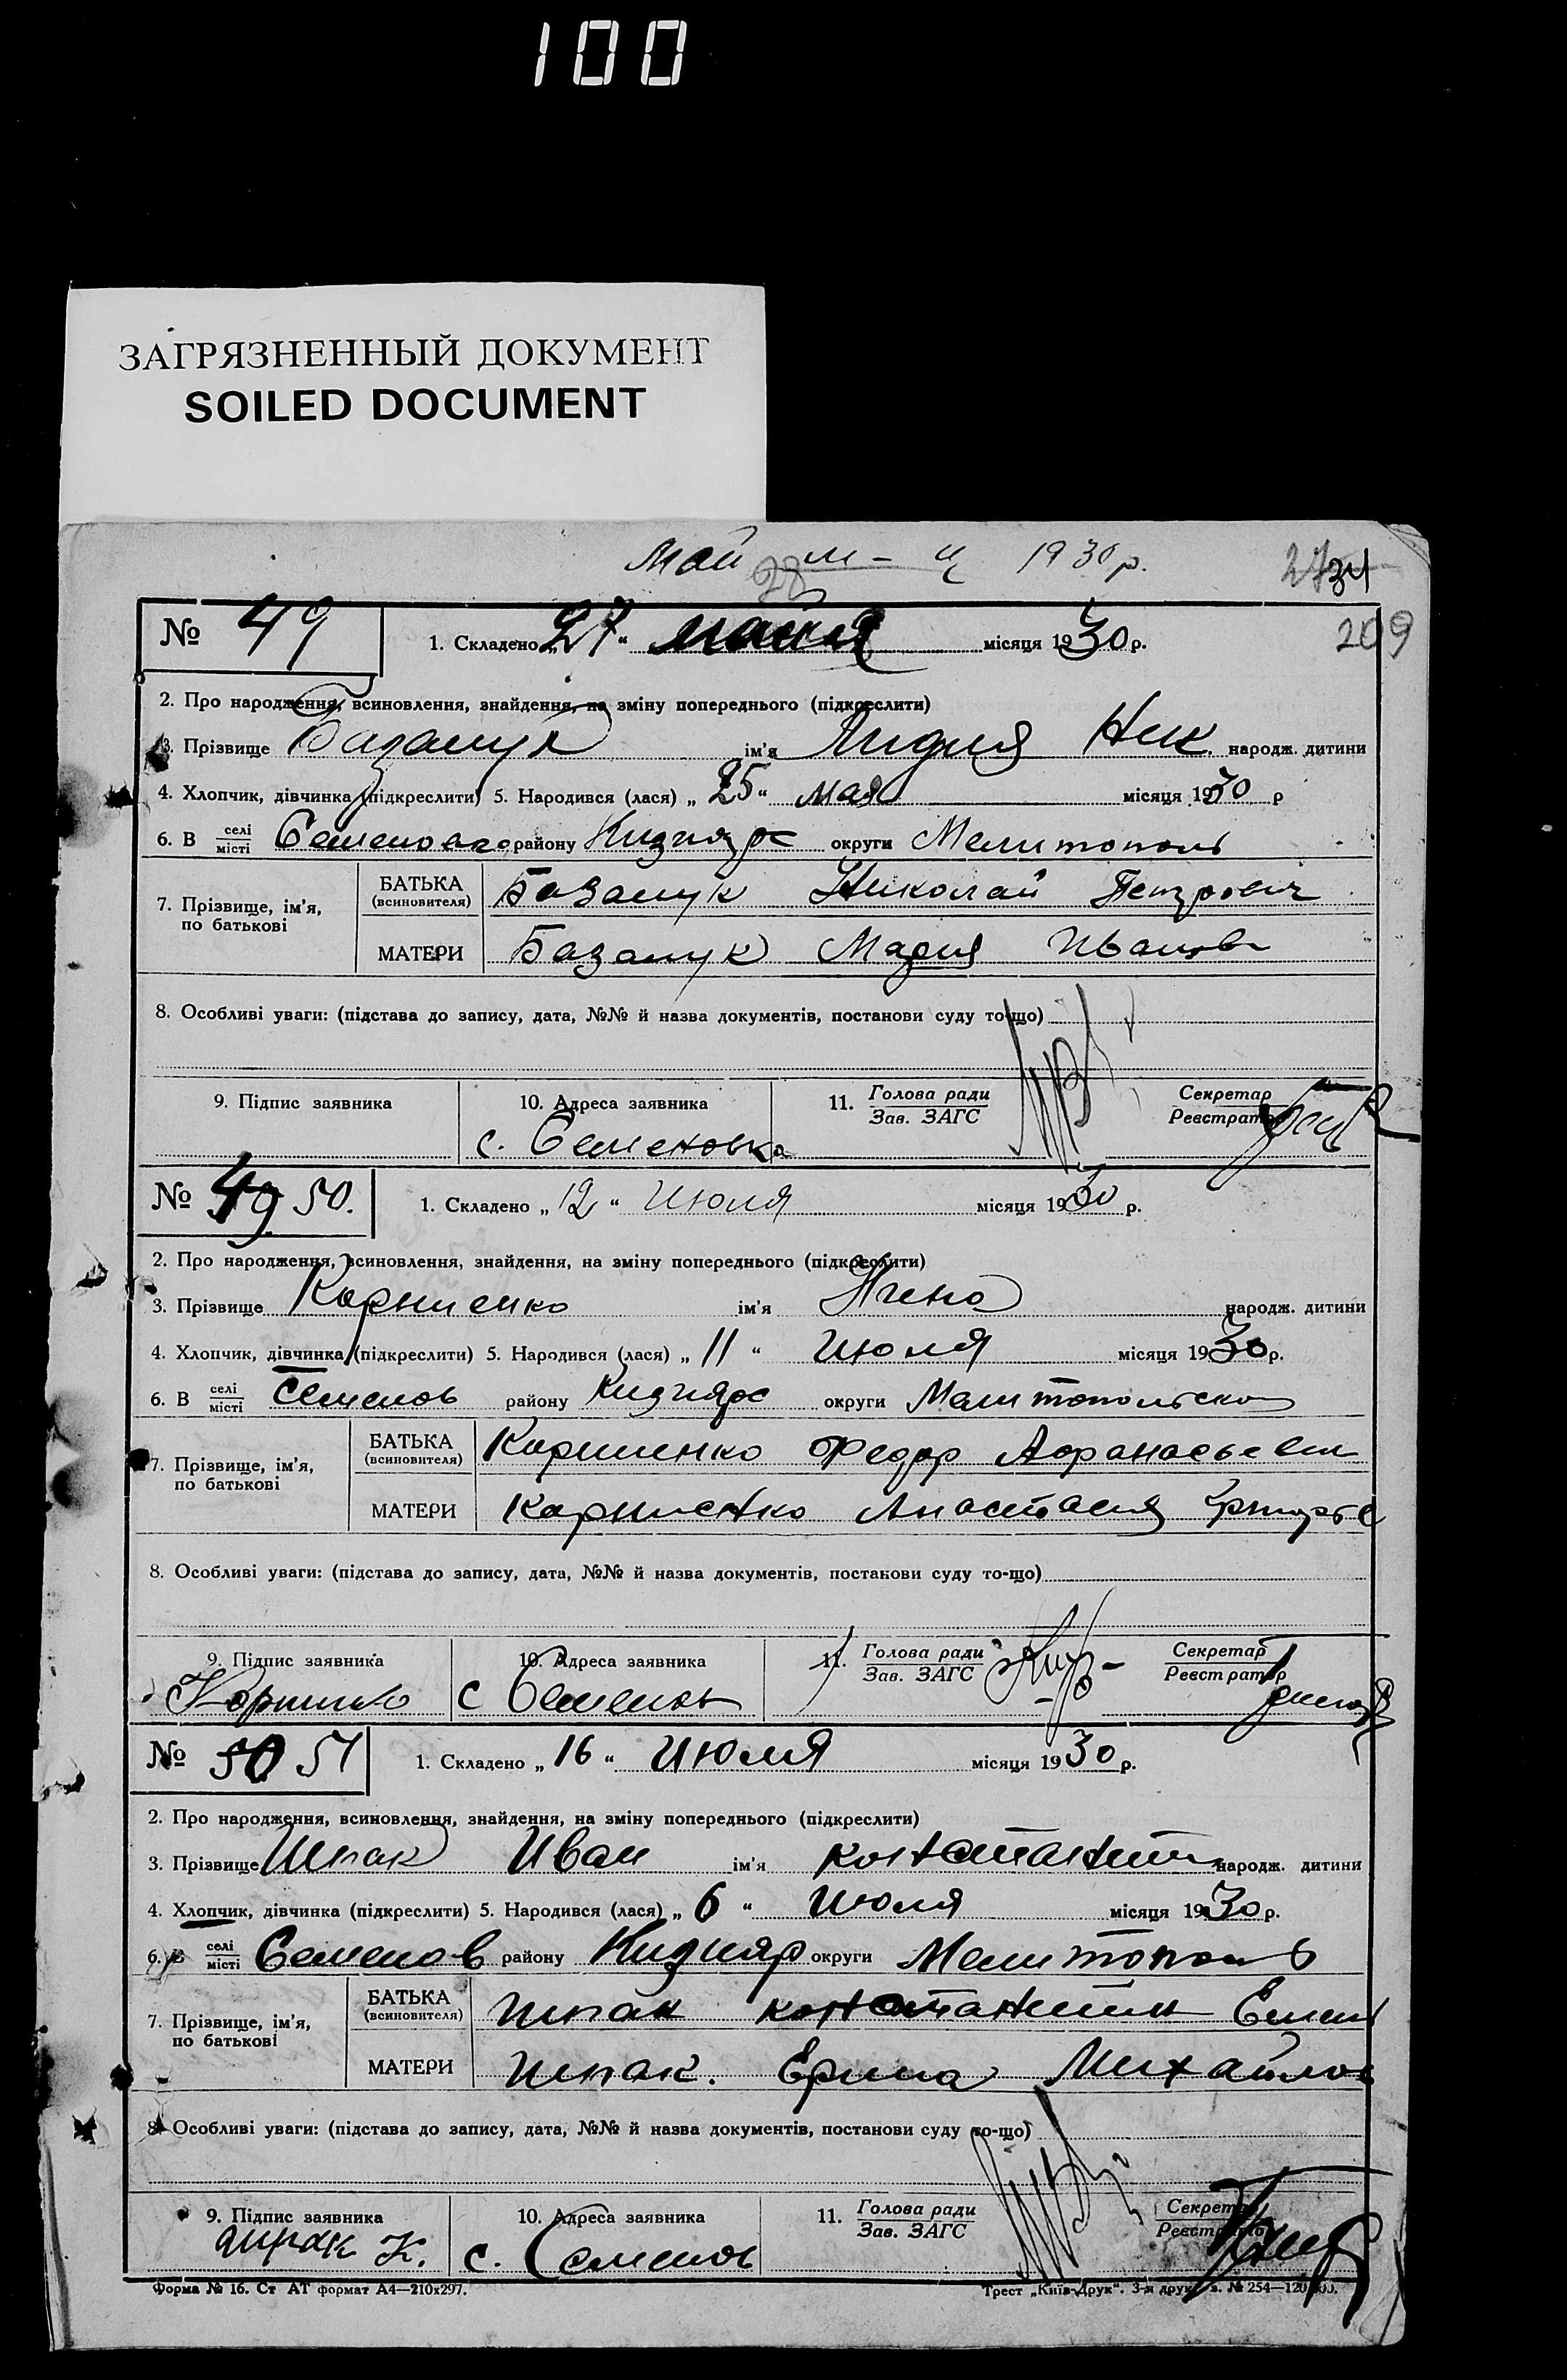 100
ЗАГРЯЗНЕННЫЙ ДОКУМЕНТ
SOILED DOCUMENT
Май м-ц 1930 р.
28
27 34
209
№ 49 1. Складено „27“ мая місяця 1930 р.
2. Про народження, всиновлення, знайдення, на зміну попереднього (підкреслити)
3. Прізвище Базалук ім'я Лидия Ник. народж. дитини
4. Хлопчик, дівчинка (підкреслити) 5. Народився (лася) „25“ мая місяця 1930 р
6. В селі/місті Семеновка району Кизияр округи Мелитополь
7. Прізвище, ім'я, по батькові
БАТЬКА (всиновителя) Базалук Николай Петрович
МАТЕРИ Базалук Мария Иванов
8. Особливі уваги: (підстава до запису, дата, №№ й назва документів, постанови суду то-що)
9. Підпис заявника 10. Адреса заявника 11. Голова ради/Зав. ЗАГС Секретар/Реєстратор
с. Семеновка
№ 49 50. 1. Складено „12“ Июля місяця 1930 р.
2. Про народження, всиновлення, знайдення, на зміну попереднього (підкреслити)
3. Прізвище Корниенко ім'я народж. дитини
4. Хлопчик, дівчинка (підкреслити) 5. Народився (лася) „11“ Июля місяця 1930 р.
6. В селі/місті Семенов району Кизияр округи Мелитопольско
7. Прізвище, ім'я, по батькові
БАТЬКА (всиновителя) Корниенко Федор Афанасьевич
МАТЕРИ Корниенко Анастасия
8. Особливі уваги: (підстава до запису, дата, №№ й назва документів, постанови суду то-що)
9. Підпис заявника 10. Адреса заявника 11. Голова ради/Зав. ЗАГС Секретар/Реєстратор
с Семенов
№ 50 51 1. Складено „16“ Июля місяця 1930 р.
2. Про народження, всиновлення, знайдення, на зміну попереднього (підкреслити)
3. Прізвище Шпак Иван ім'я Константин народж. дитини
4. Хлопчик, дівчинка (підкреслити) 5. Народився (лася) „6“ Июля місяця 1930 р.
6. В селі/місті Семенов району Кизияр округи Мелитополь
7. Прізвище, ім'я, по батькові
БАТЬКА (всиновителя) Шпак Константин
МАТЕРИ Шпак. Ерина Михайлов
8. Особливі уваги: (підстава до запису, дата, №№ й назва документів, постанови суду то-що)
9. Підпис заявника 10. Адреса заявника 11. Голова ради/Зав. ЗАГС Секретар/Реєстратор
Шпак К. с. Семенов
Форма № 16. Ст АТ формат А4—210х297. Трест „Київ-Друк“. 3-я друк. з. № 254—120.000.